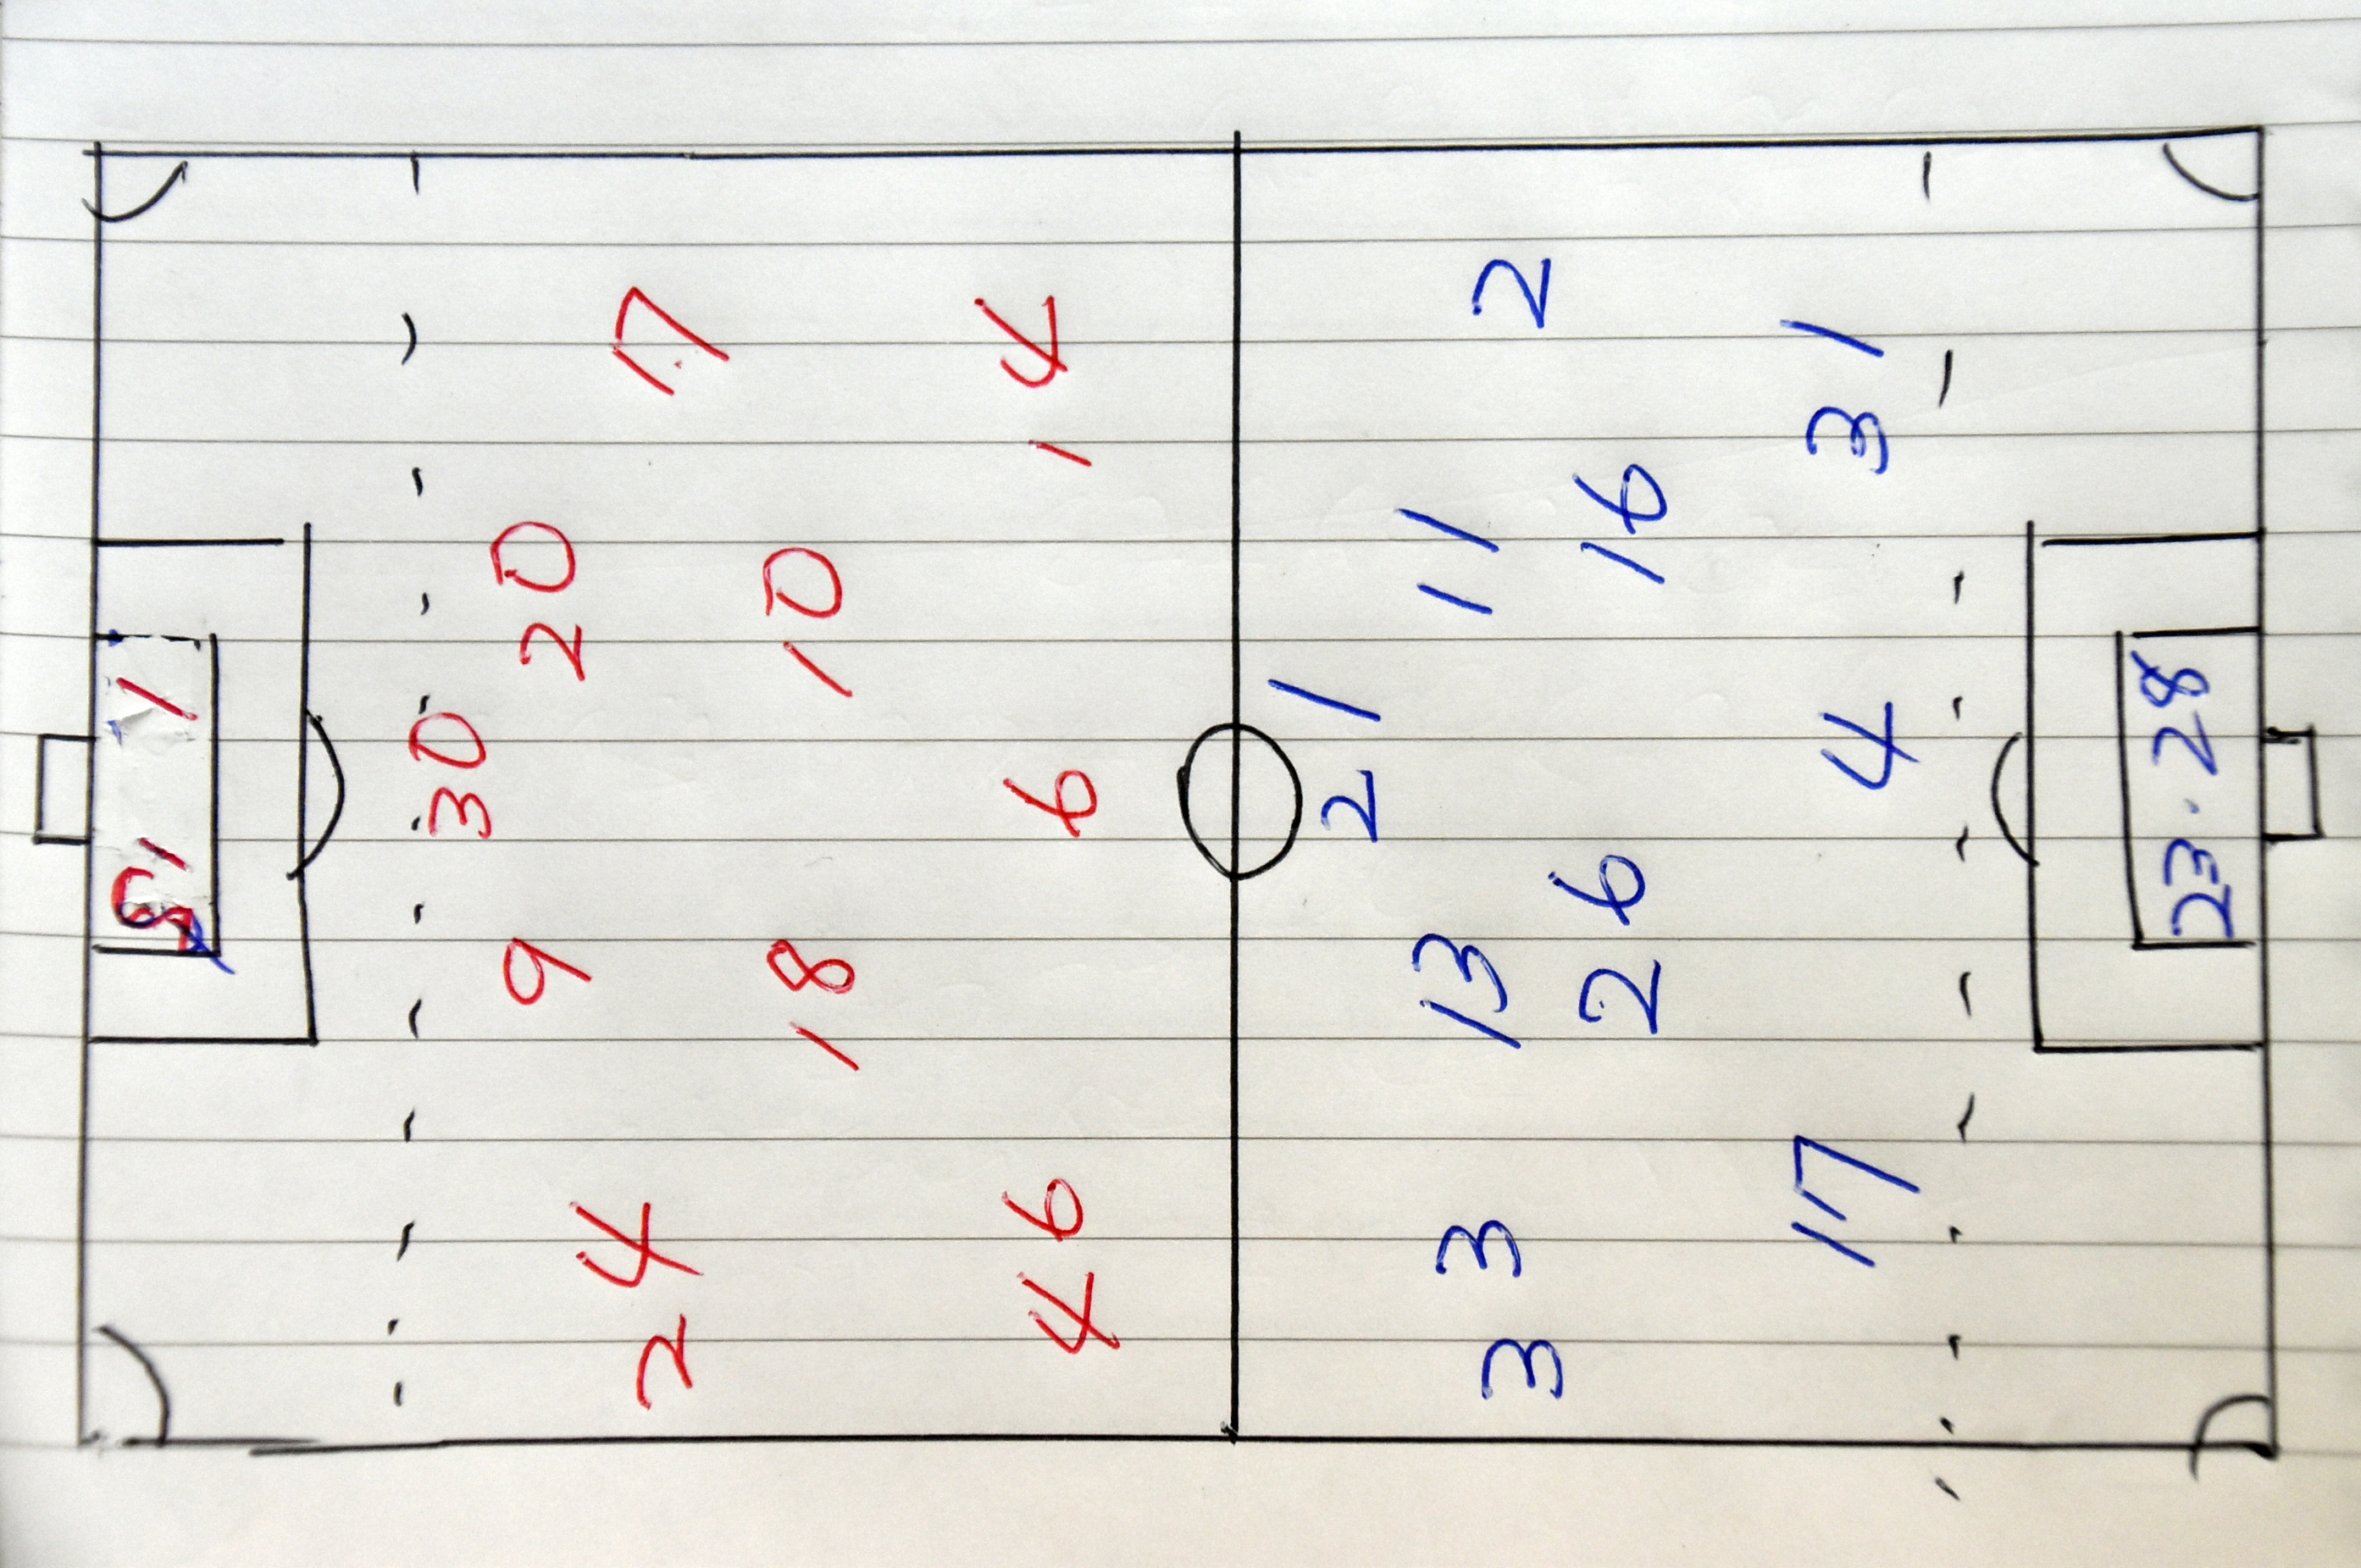 1
30
9 20
24 7
18 10
46 6 14
21
13 11
33 2
26 16
17 4 31
23 · 28